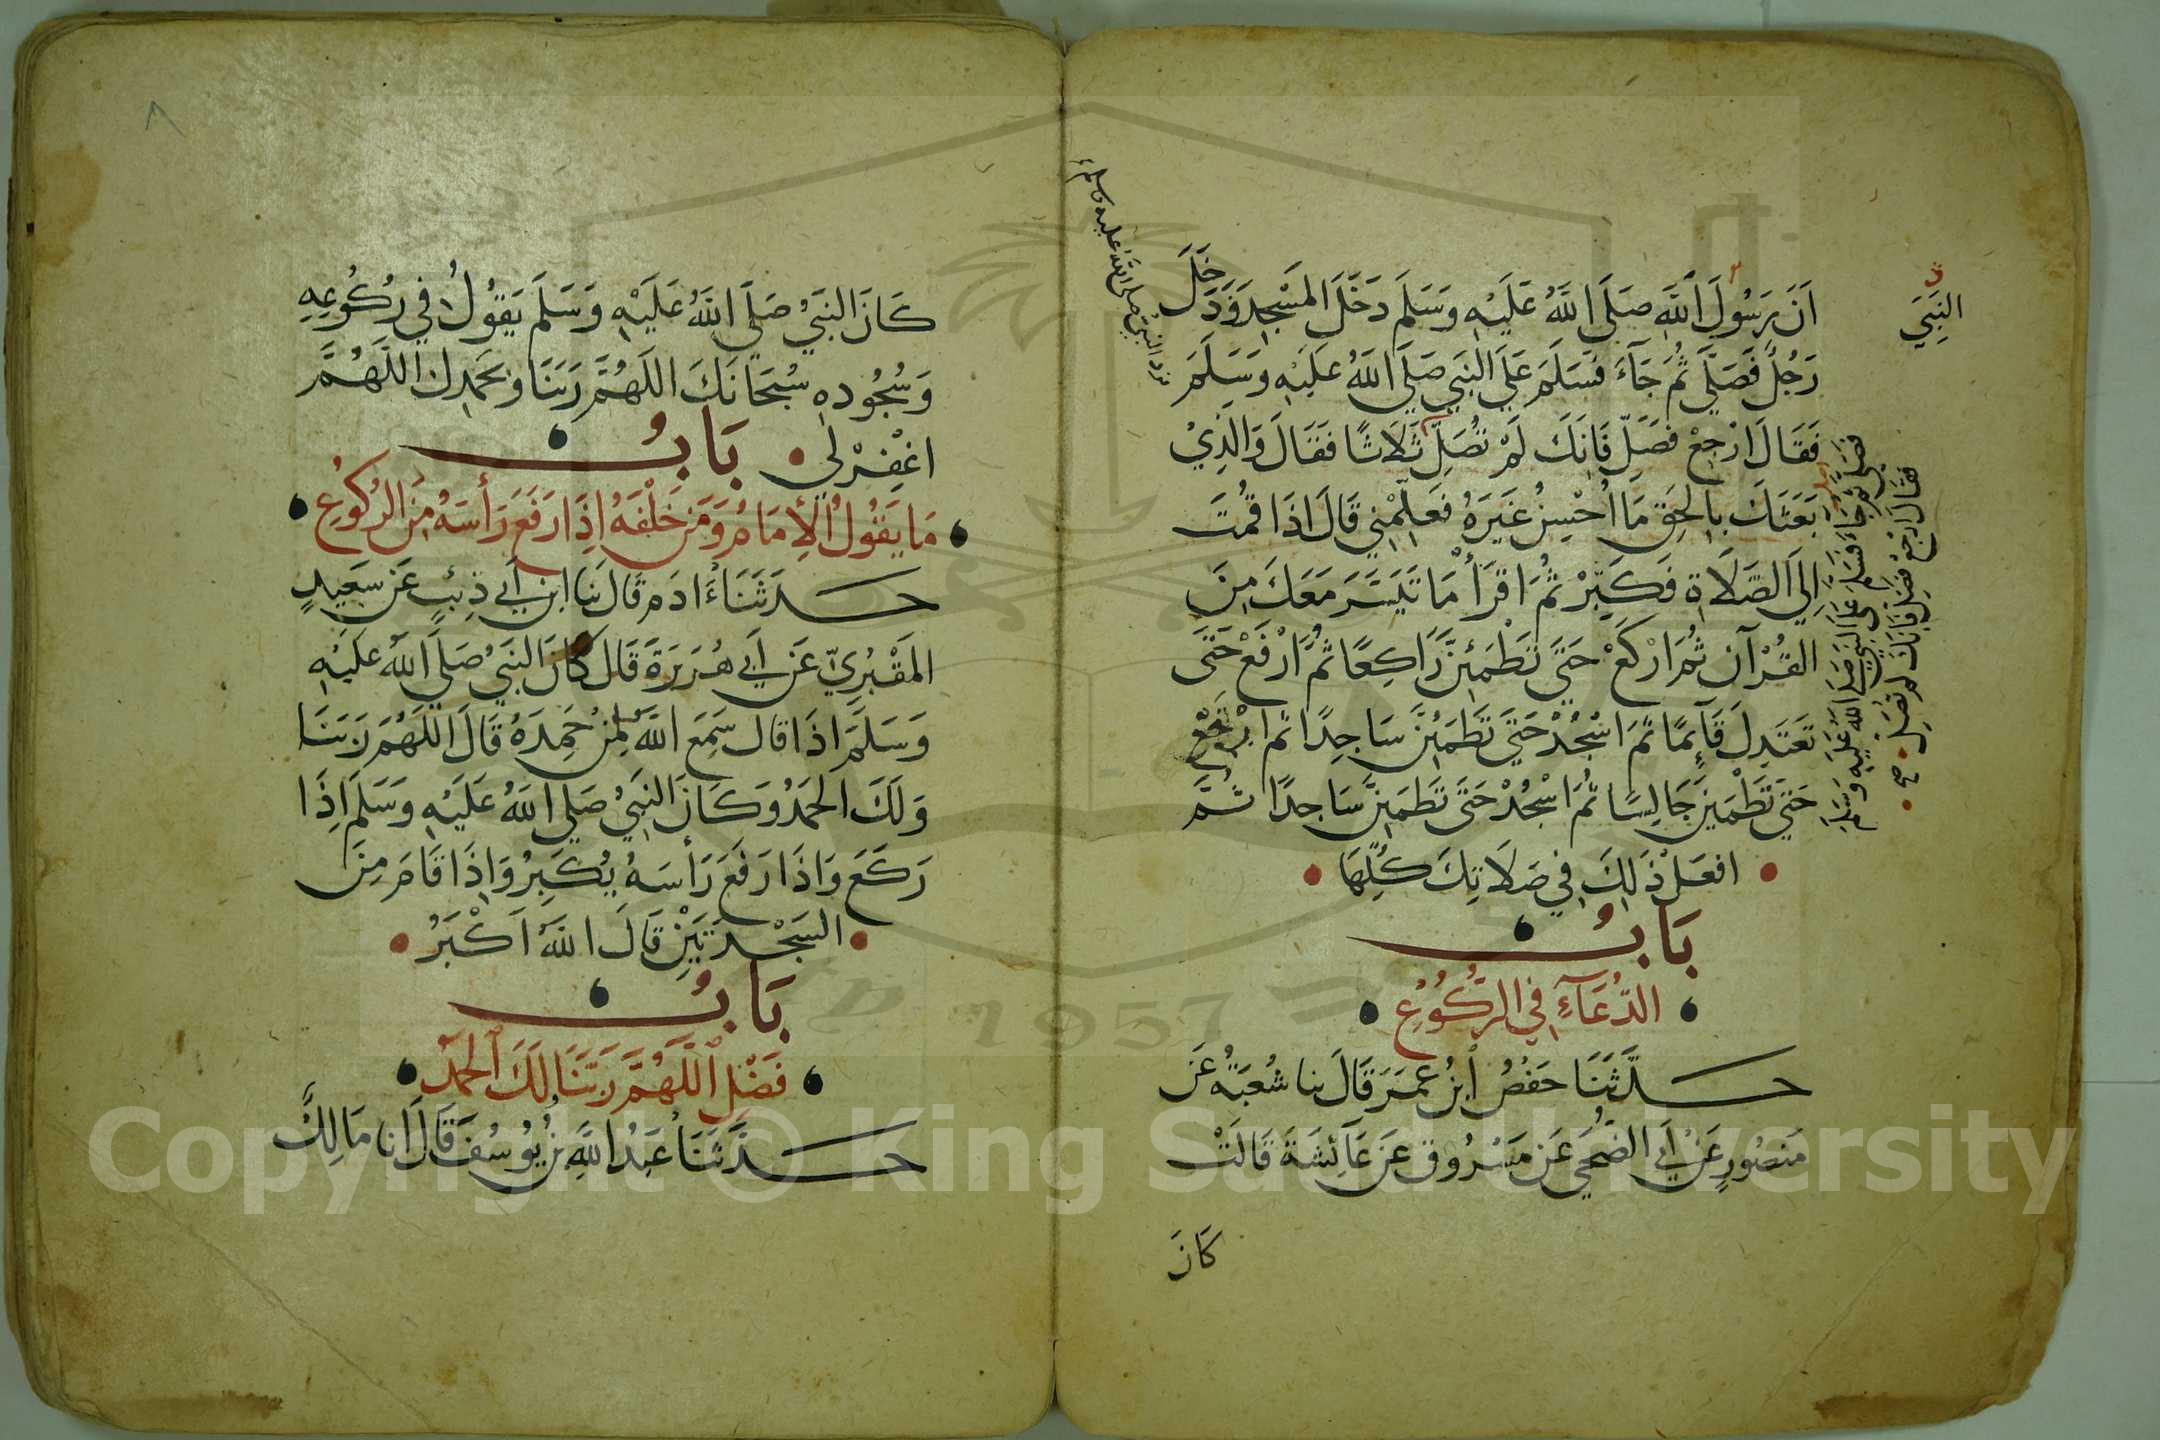 النَّبِيَّ
اَنَّ رَسُولَ اللَّهِ صَلَّى اللَّهُ عَلَيْهِ وَسَلَّمَ دَخَلَ المَسْجِدَ وَدَخَلَ
رَجُلٌ فَصَلَّى ثُمَّ جَآءَ فَسَلَّمَ عَلَى النَّبِيِّ صَلَّى اللَّهُ عَلَيْهِ وَسَلَّمَ
فَقَالَ ارْجِعْ فَصَلِّ فَاِنَّكَ لَمْ تُصَلِّ ثَلَاثًا فَقَالَ وَالَّذِيْ
بَعَثَكَ بِالحَقِّ مَا اُحْسِنُ غَيْرَهُ فَعَلِّمْنِي قَالَ اذَا قُمْتَ
اِلَى الصَّلَاةِ فَكَبِّرْ ثُمَّ اقْرَأْ مَا تَيَسَّرَ مَعَكَ مِنَ
القُرْآنِ ثُمَّ ارْكَعْ حَتَّى تَطْمَئِنَّ رَاكِعًا ثُمَّ ارْفَعْ حَتَّى
تَعْتَدِلَ قَآئِمًا ثُمَّ اسْجُدْ حَتَّى تَطْمَئِنَّ سَاجِدًا ثُمَّ ارْفَعْ
حَتَّى تَطْمَئِنَّ جَالِسًا ثُمَّ اسْجُدْ حَتَّى تَطْمَئِنَّ سَاجِدًا ثُمَّ
افعَلْ ذَلِكَ فِي صَلَاتِكَ كُلِّهَا
بَابُ
الدُّعَآءِ فِي الرُّكُوْعِ
حَدَّثَنَا حَفْصُ ابْنُ عُمَرَ قَالَ نا شُعْبَةُ عَنْ
مَنْصُورٍ عَنْ اَبِي الضُّحَى عَنْ مَسْرُوقٍ عَنْ عَآئِشَةَ قَالَتْ
كَانَ
فَصَلَّى ثُمَّ جَاءَ فَسَلَّمَ عَلَى النَّبِيِّ صَلَّى اللَّهُ عَلَيْهِ وَسَلَّمَ
فَقَالَ ارْجِعْ فَصَلِّ فَاِنَّكَ لَمْ تُصَلِّ صح
النبيُّ صلى اللَّه عليه وسلم
كَانَ النَّبِيُّ صَلَّى اللَّهُ عَلَيْهِ وَسَلَّمَ يَقُولُ فِي رُكُوْعِهِ
وَسُجُودِهِ سُبْحَانَكَ اللَّهُمَّ رَبَّنَا وَبِحَمْدِكَ اللَّهُمَّ
اغْفِرْ لِي بَابُ
مَا يَقُولُ الْأِمَامُ وَمَنْ خَلْفَهُ اِذَا رَفَعَ رَأْسَهُ مِنَ الرُّكُوْعِ
حَدَّثَنَا ءَادَمُ قَالَ نَا ابن اَبِي ذِئبٍ عَنْ سَعِيدٍ
المَقْبُرِيِّ عَنْ اَبِي هُرَيرَةَ قَالَ كَانَ النَّبِيُّ صَلَّى اللَّهُ عَلَيْهِ
وَسَلَّمَ اذَا قَالَ سَمِعَ اللَّهُ لِمَنْ حَمِدَهُ قَالَ اللَّهُمَّ رَبَّنَا
وَلَكَ الحَمْدُ وَكَانَ النَّبِيُّ صَلَّى اللَّهُ عَلَيْهِ وَسَلَّمَ اِذَا
رَكَعَ وَاذَا رَفَعَ رَأْسَهُ يُكَبِّرُ وَاِذَا قَامَ مِنَ
السَّجْدَتَيْنِ قَالَ اللَّهُ اَكْبَرُ
بَابُ
فَضْلِ اللَّهُمَّ رَبَّنَا لَكَ الْحَمْدُ
حَدَّثَنَا عَبْدُ اللَّهِ بْنُ يُوسُفَ قَالَ انا مَالِكٌ
٨
1957
Copyright © King Saud University